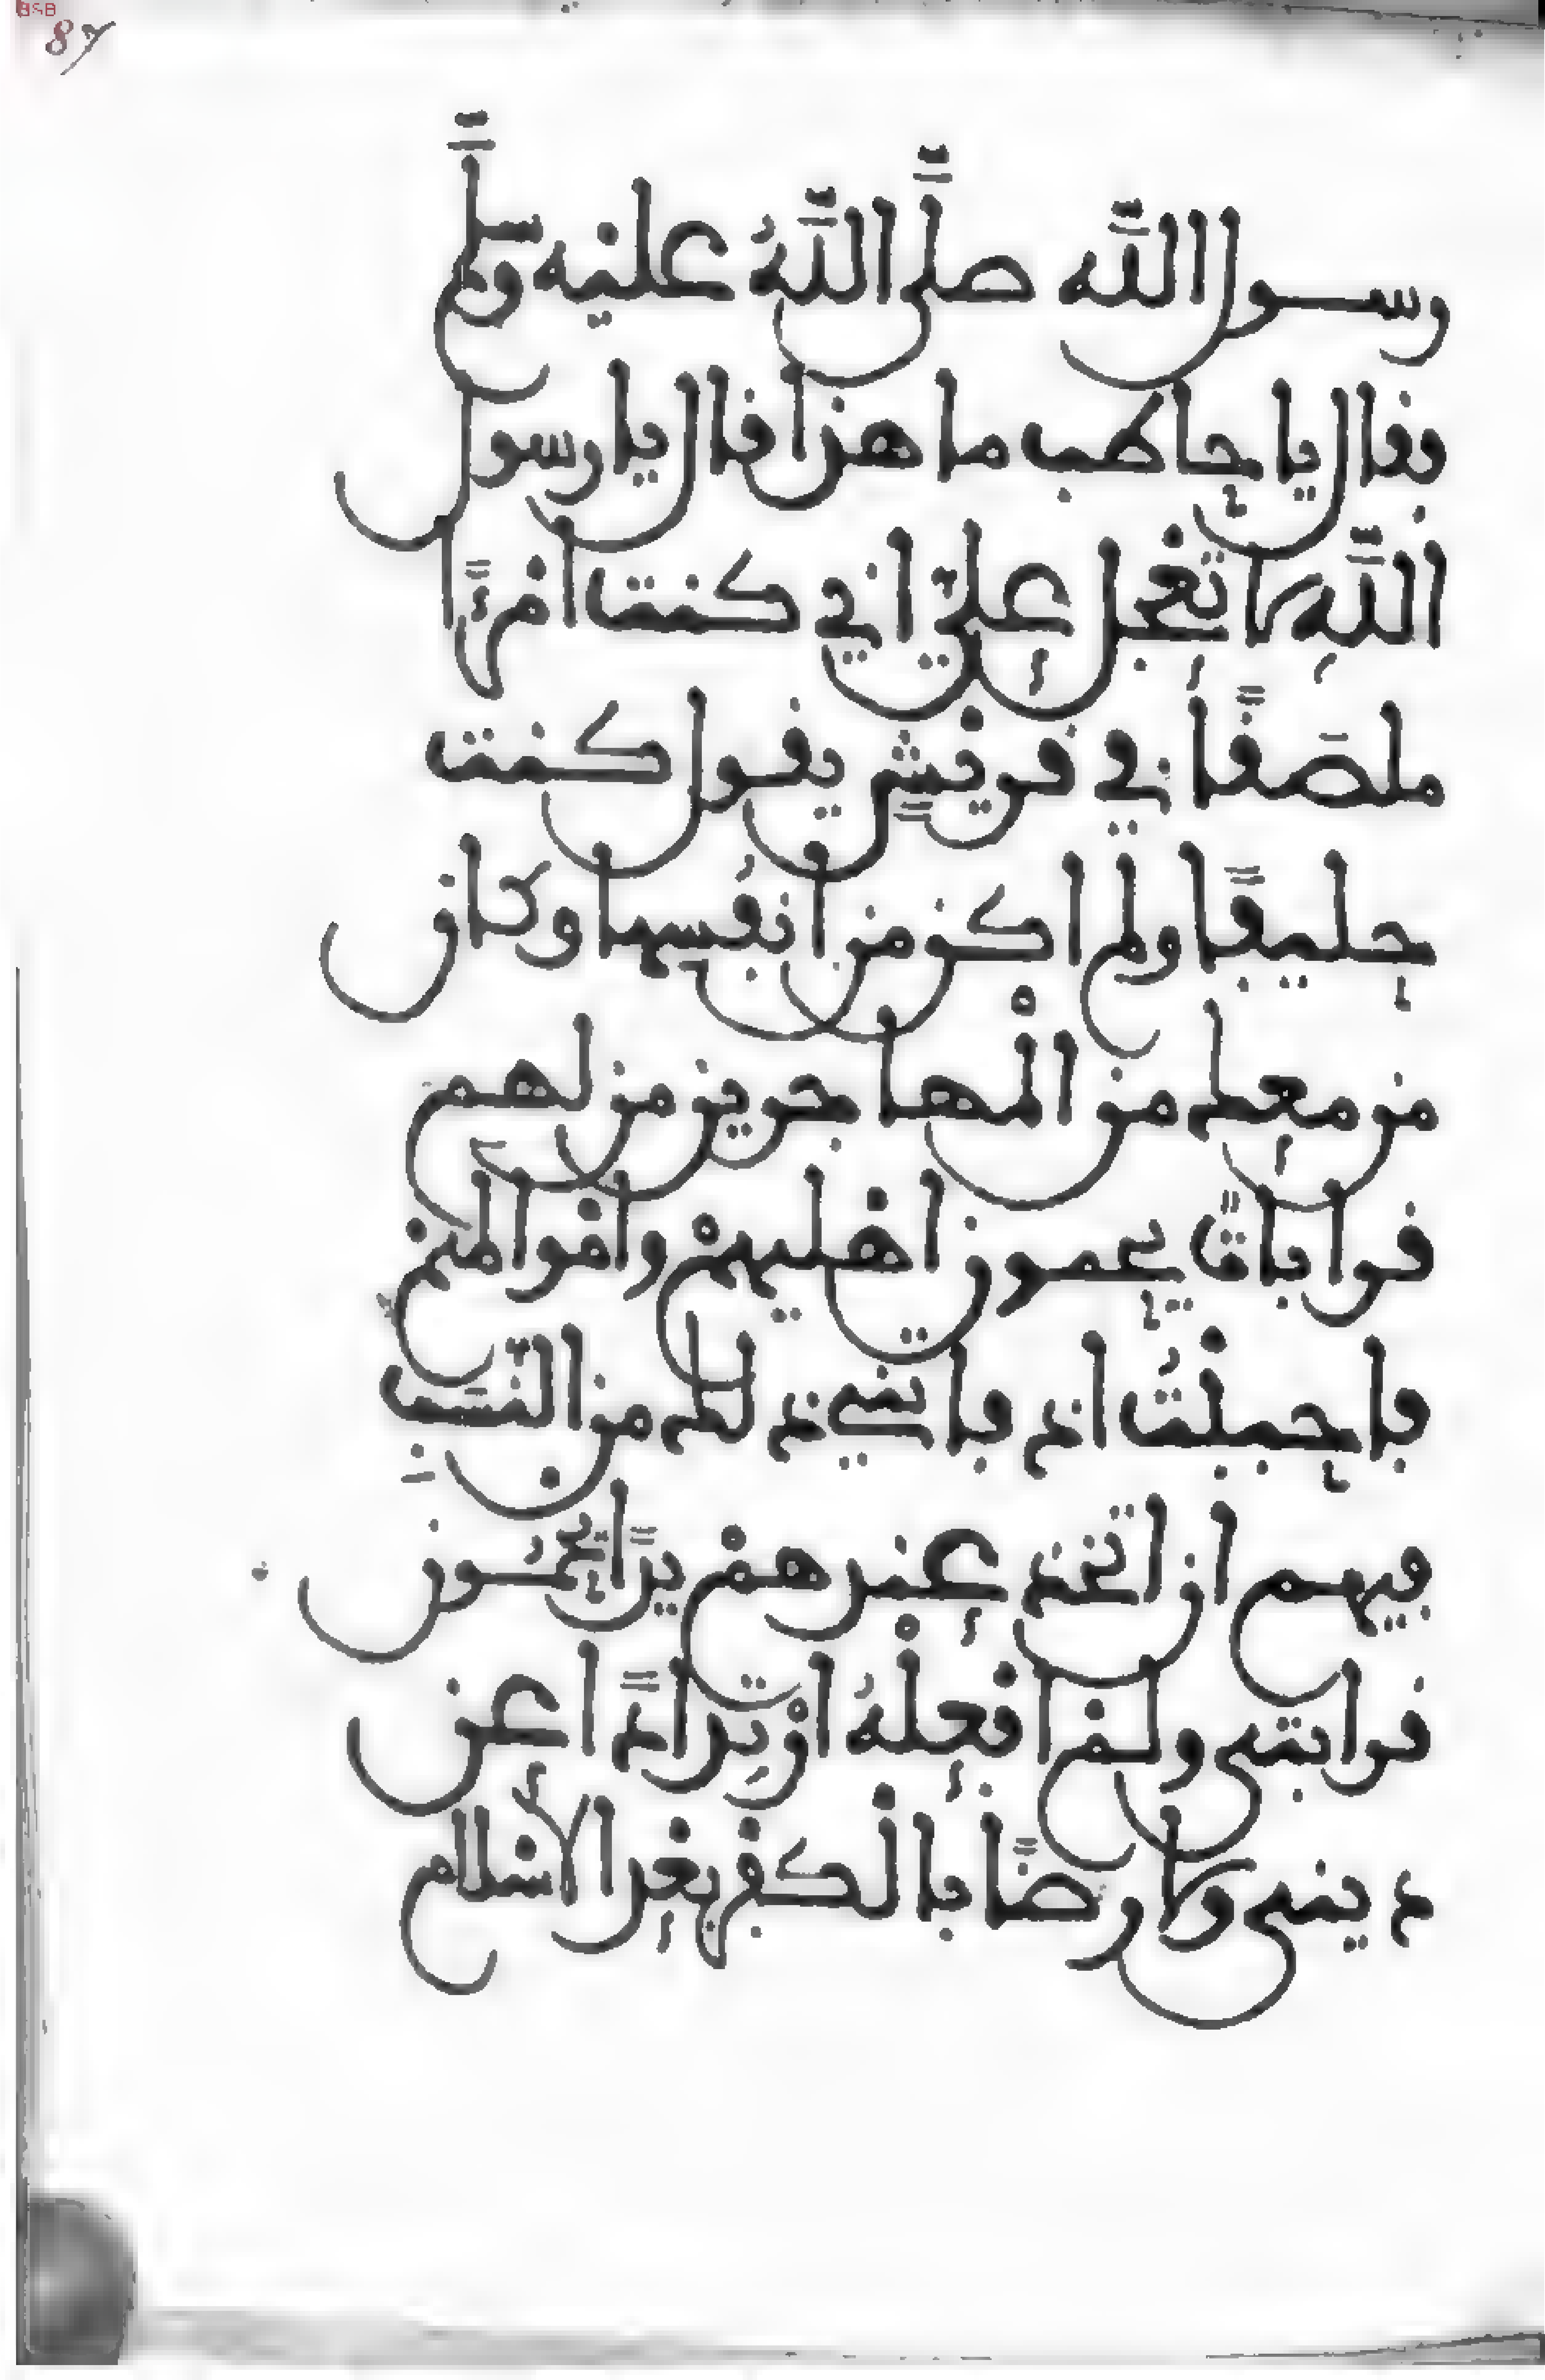 87
رسول الله صلَّى اللَّهُ عليْه وسلَّم
فقال يا حاطب ما هذا قال يا رسول
اللَّهِ لا تعْجل عليَّ اني كنت امْرءًا
ملصَقًا في قريْشٍ يقول كنت
حليفًا ولم اكن من انفُسها وكان
من معك من الْمهاجرين من لهم
قرابات يحمون اهْليهمْ وامْوالهمْ
فاحببْتُ اذ فاتني ذلك من النَّسَبِ
فيهم ان اتخذ عندهمْ يدًا يحمُون
قرابتي ولمْ افعلْهُ ارْتِدادًا عن
ديني ولا رضًا بالْكفْر بعْد الاسْلام